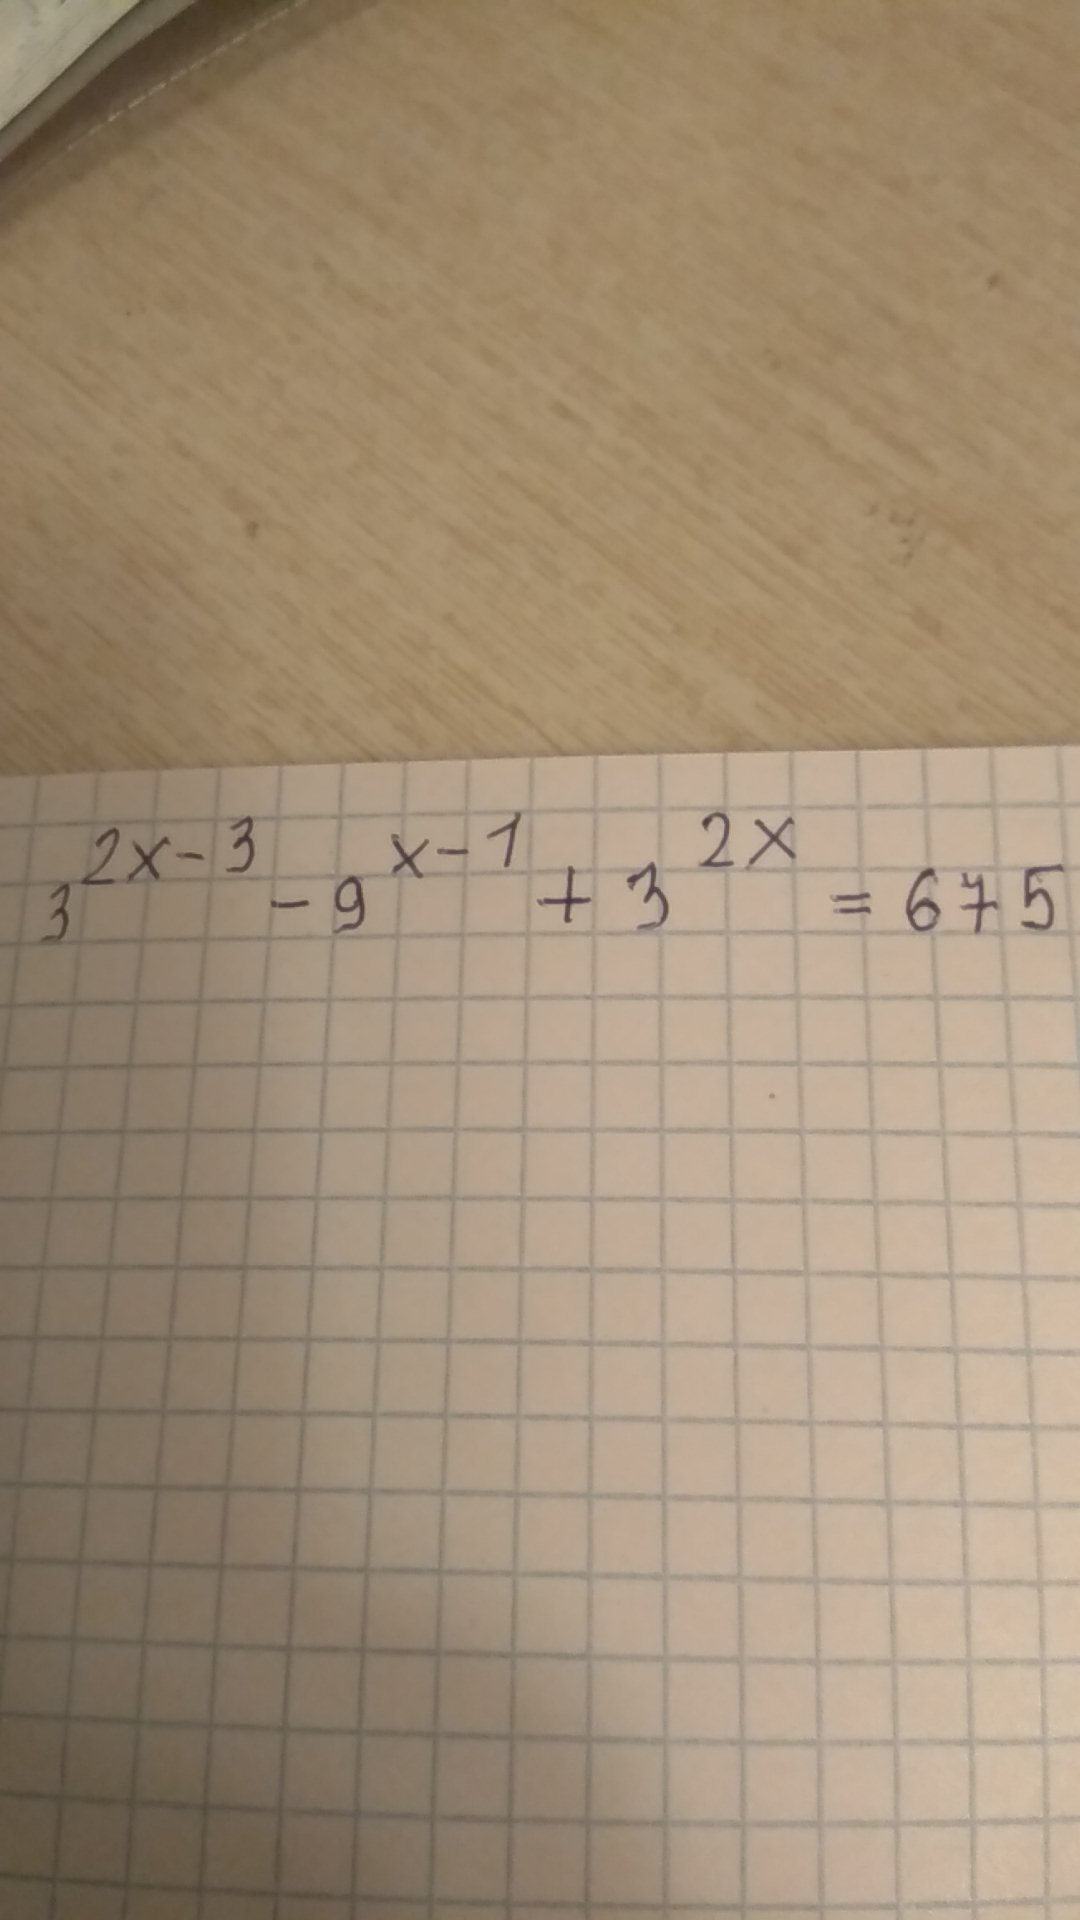 3^{2x-3} - 9^{x-1} + 3^{2x} = 675